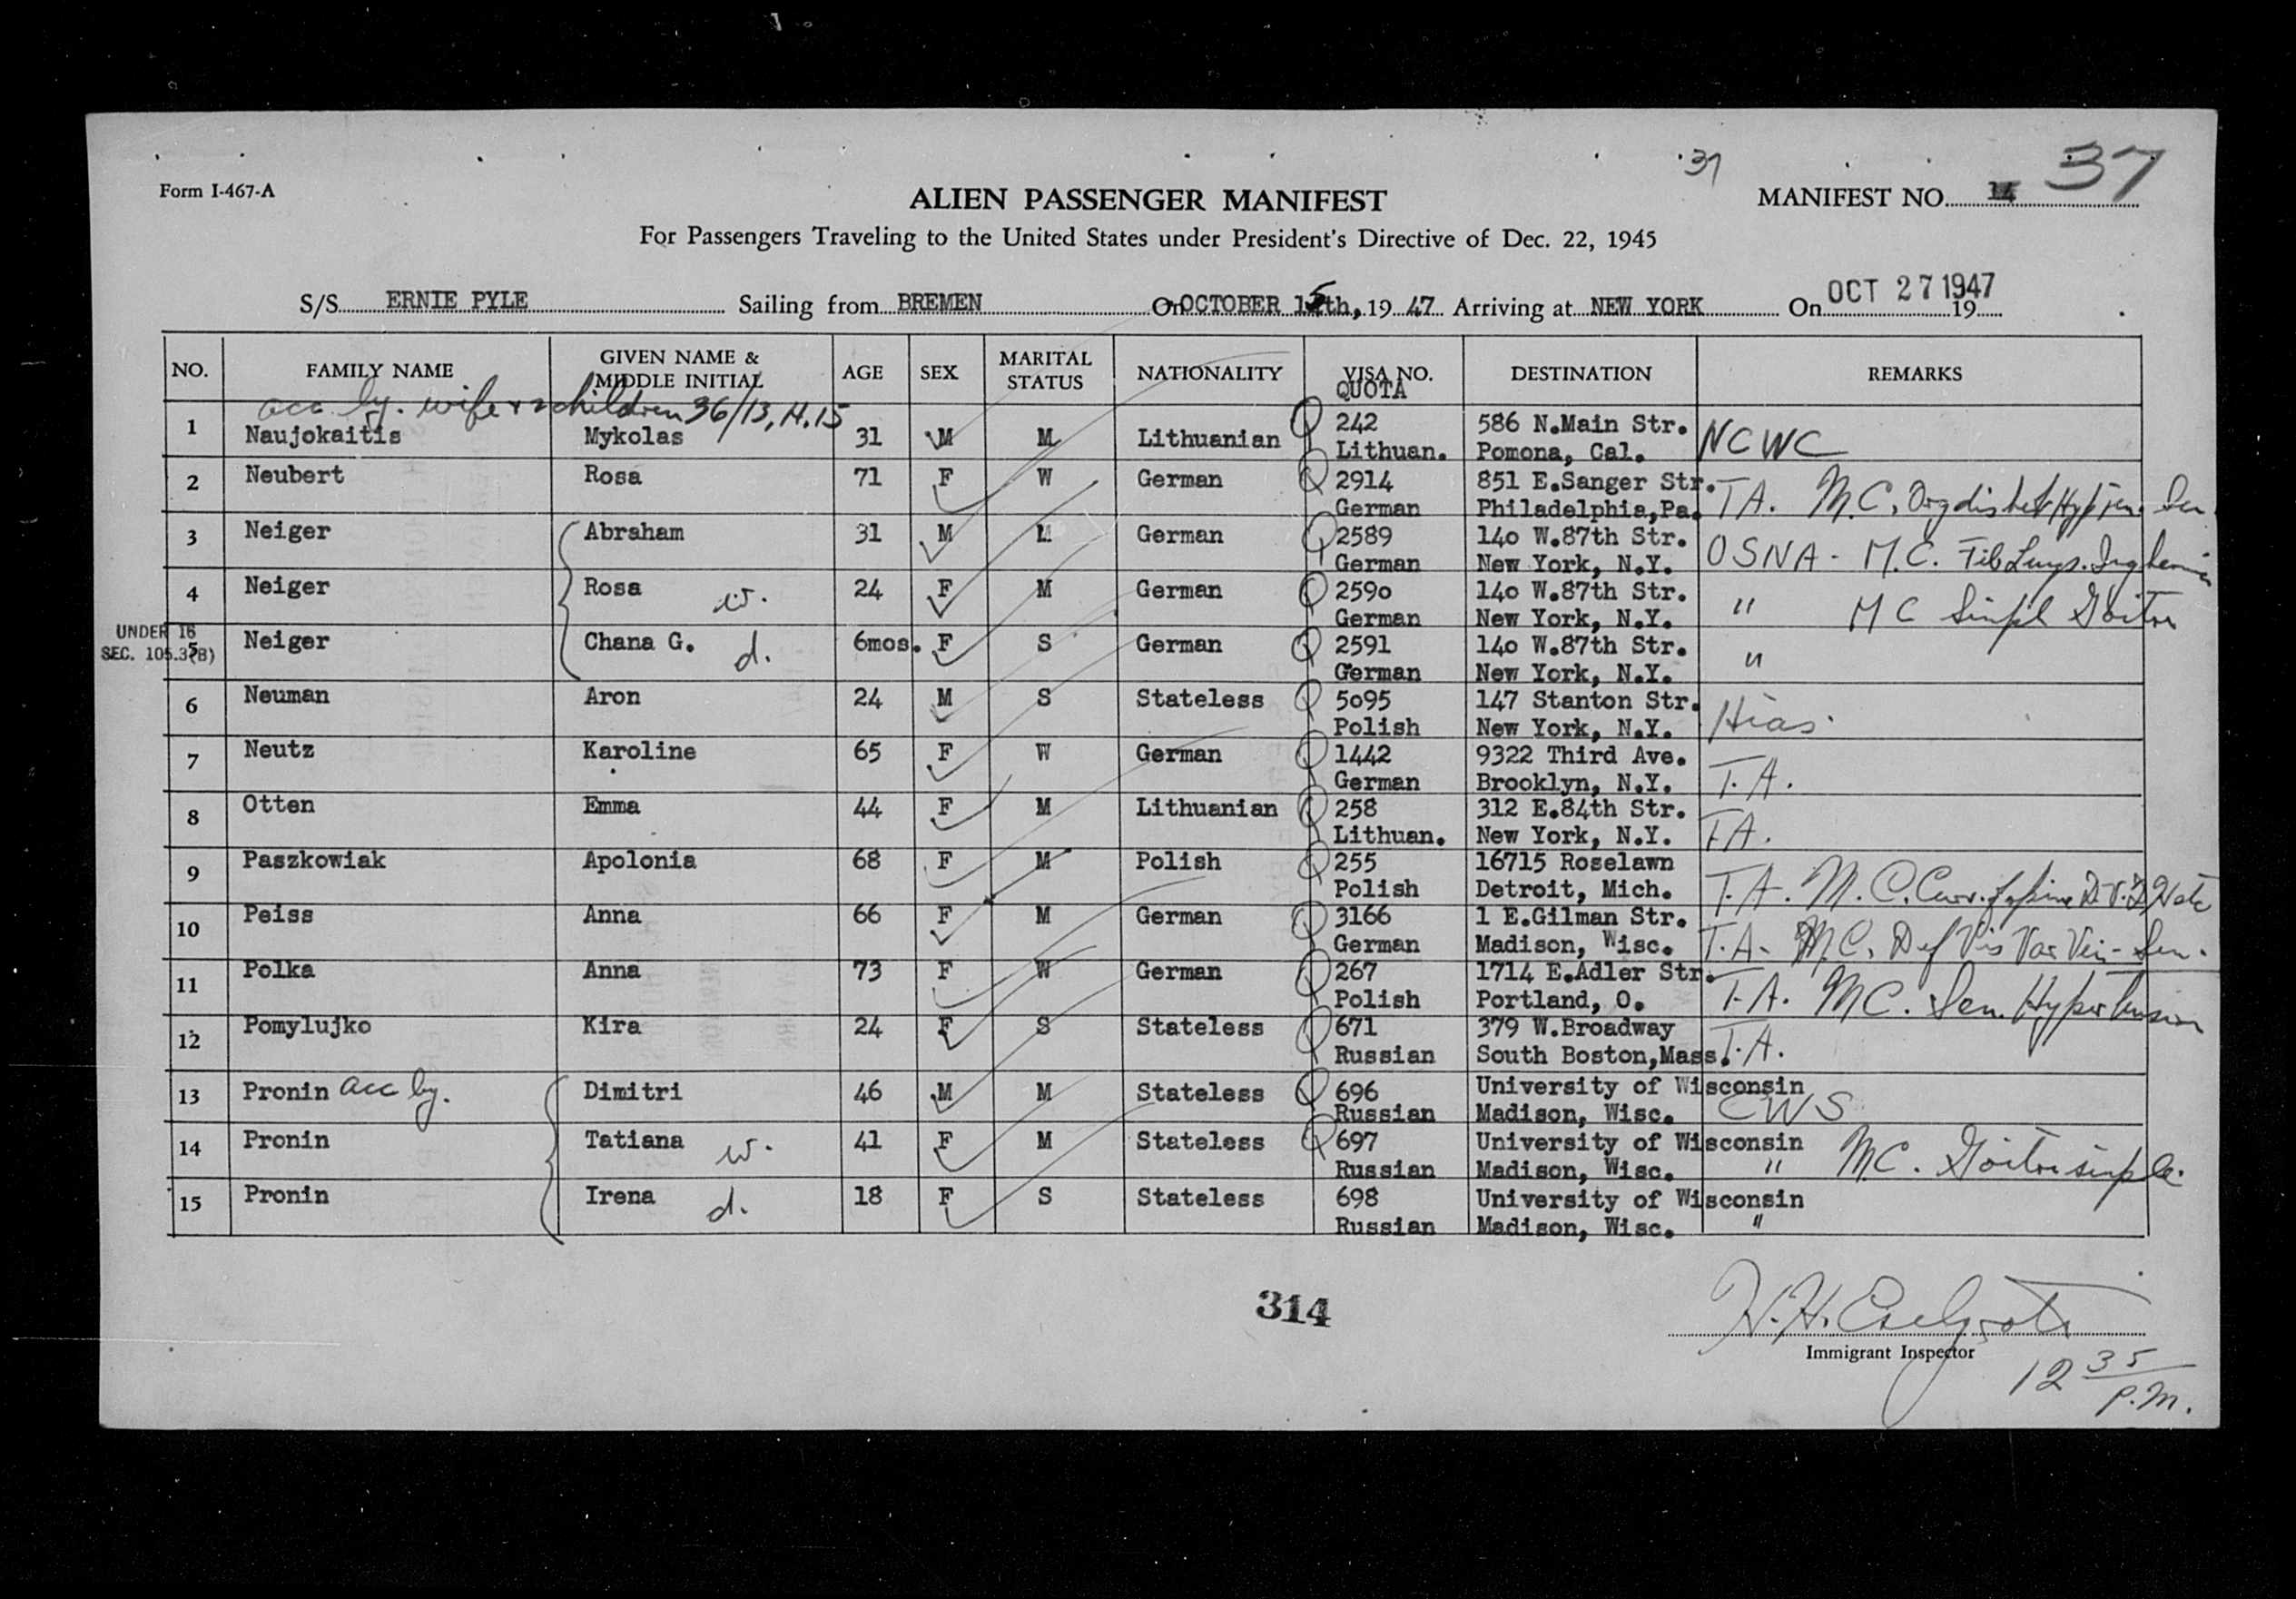 37
Form I-467-A
ALIEN PASSENGER MANIFEST
MANIFEST NO. 14 37
For Passengers Traveling to the United States under President's Directive of Dec. 22, 1945
S/S ERNIE PYLE Sailing from BREMEN On OCTOBER 15th, 19 47 Arriving at NEW YORK On OCT 27 1947 19
NO. FAMILY NAME GIVEN NAME & MIDDLE INITIAL AGE SEX MARITAL STATUS NATIONALITY VISA NO. QUOTA DESTINATION REMARKS
acc by. wife + 2 children 36/13, 14, 15
1 Naujokaitis Mykolas 31 M M Lithuanian 242 586 N.Main Str. NCWC
Lithuan. Pomona, Cal.
2 Neubert Rosa 71 F W German 2914 851 E.Sanger Str. T.A. M.C.
German Philadelphia,Pa.
3 Neiger Abraham 31 M M German 2589 140 W.87th Str. OSNA - M.C.
German New York, N.Y.
4 Neiger Rosa w. 24 F M German 2590 140 W.87th Str. " MC Simpl Goitre
German New York, N.Y.
UNDER 16
SEC. 105.3(B)
5 Neiger Chana G. d. 6mos. F S German 2591 140 W.87th Str. "
German New York, N.Y.
6 Neuman Aron 24 M S Stateless 5095 147 Stanton Str. Hias.
Polish New York, N.Y.
7 Neutz Karoline 65 F W German 1442 9322 Third Ave. T.A.
German Brooklyn, N.Y.
8 Otten Emma 44 F M Lithuanian 258 312 E.84th Str. T.A.
Lithuan. New York, N.Y.
9 Paszkowiak Apolonia 68 F M Polish 255 16715 Roselawn T.A. M.C. Curv. of Spine
Polish Detroit, Mich.
10 Peiss Anna 66 F M German 3166 1 E.Gilman Str. T.A- M.C. Def Vis Var Vei- Sen.
German Madison, Wisc.
11 Polka Anna 73 F W German 267 1714 E.Adler Str. T.A. MC. Sen. Hypertension
Polish Portland, O.
12 Pomylujko Kira 24 F S Stateless 671 379 W.Broadway T.A.
Russian South Boston,Mass.
13 Pronin acc by. Dimitri 46 M M Stateless 696 University of Wisconsin CWS
Russian Madison, Wisc.
14 Pronin Tatiana w. 41 F M Stateless 697 University of Wisconsin " MC. Goitre simple.
Russian Madison, Wisc.
15 Pronin Irena d. 18 F S Stateless 698 University of Wisconsin "
Russian Madison, Wisc.
314
Immigrant Inspector
12 35 P.M.